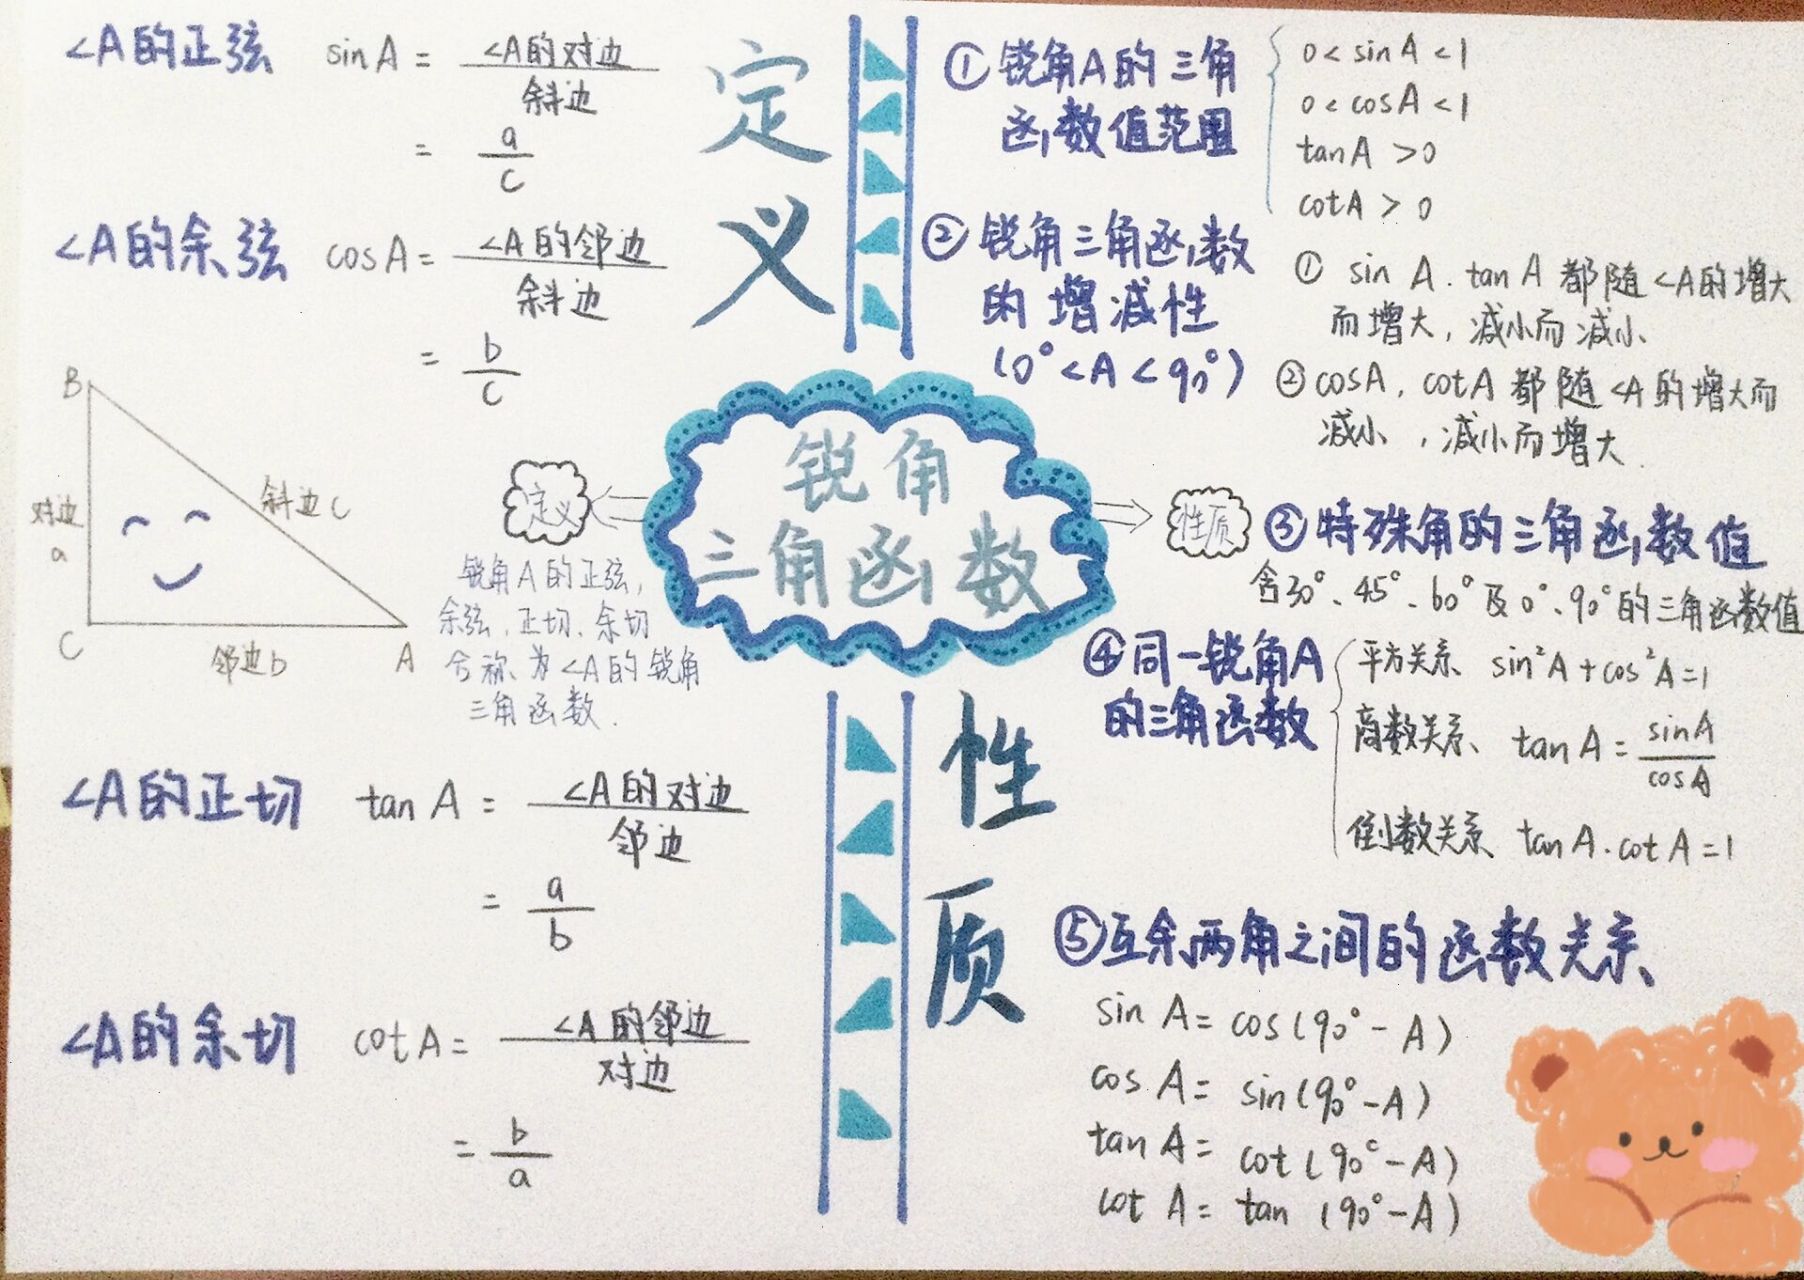 ∠A的正弦 sinA = ∠A的对边/斜边
= a/c
∠A的余弦 cosA = ∠A的邻边/斜边
= b/c
B
对边
a
斜边c
C
邻边b
A
∠A的正切 tanA = ∠A的对边/邻边
= a/b
∠A的余切 cotA = ∠A的邻边/对边
= b/a
定义
锐角
三角函数
定义
锐角A的正弦,
余弦、正切、余切
合称为∠A的锐角
三角函数.
性质
性质
①锐角A的三角
函数值范围
0<sinA<1
0<cosA<1
tanA>0
cotA>0
②锐角三角函数
的增减性
(0°<A<90°)
① sinA.tanA都随∠A的增大
而增大,减小而减小
②cosA,cotA都随∠A的增大而
减小,减小而增大.
③特殊角的三角函数值
含30°、45°、60°及0°、90°的三角函数值
④同一锐角A
的三角函数
平方关系 sin²A+cos²A=1
商数关系 tanA=sinA/cosA
倒数关系 tanA.cotA=1
⑤互余两角之间的函数关系
sinA=cos(90°-A)
cosA=sin(90°-A)
tanA=cot(90°-A)
cotA=tan(90°-A)